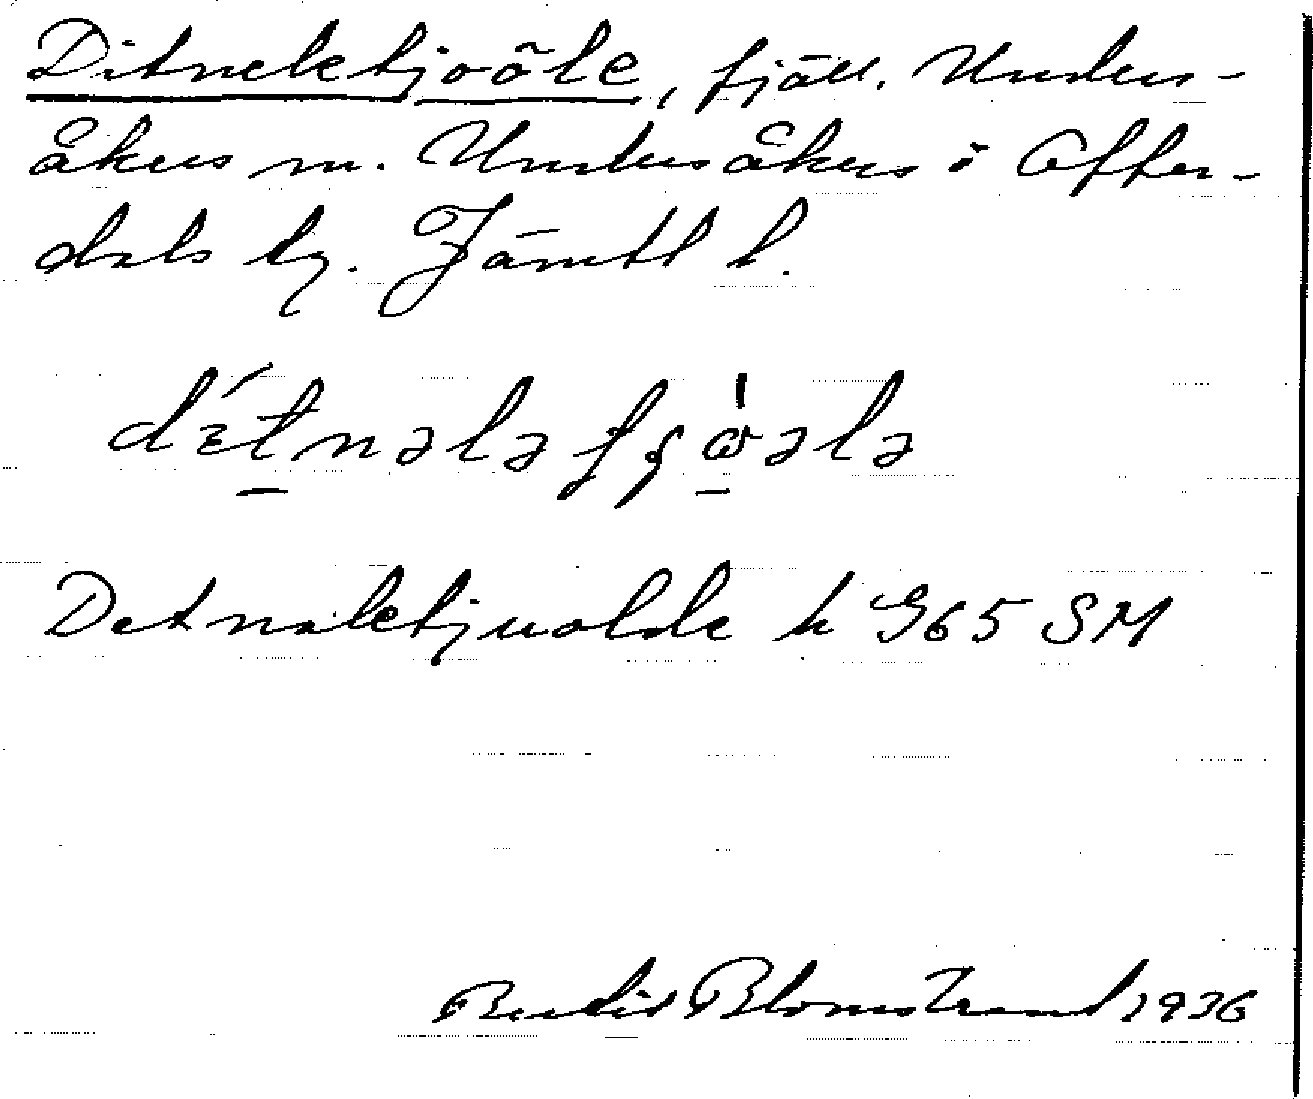 Ditneletjoõle, fjäll. Unders-
åkers sn. Undersåkers o Offer-
dals tg. Jämtl l.
détnələ ʃʂὼələ
Detnaletjuolde h 965 SM
Bertil Blomstrand 1936